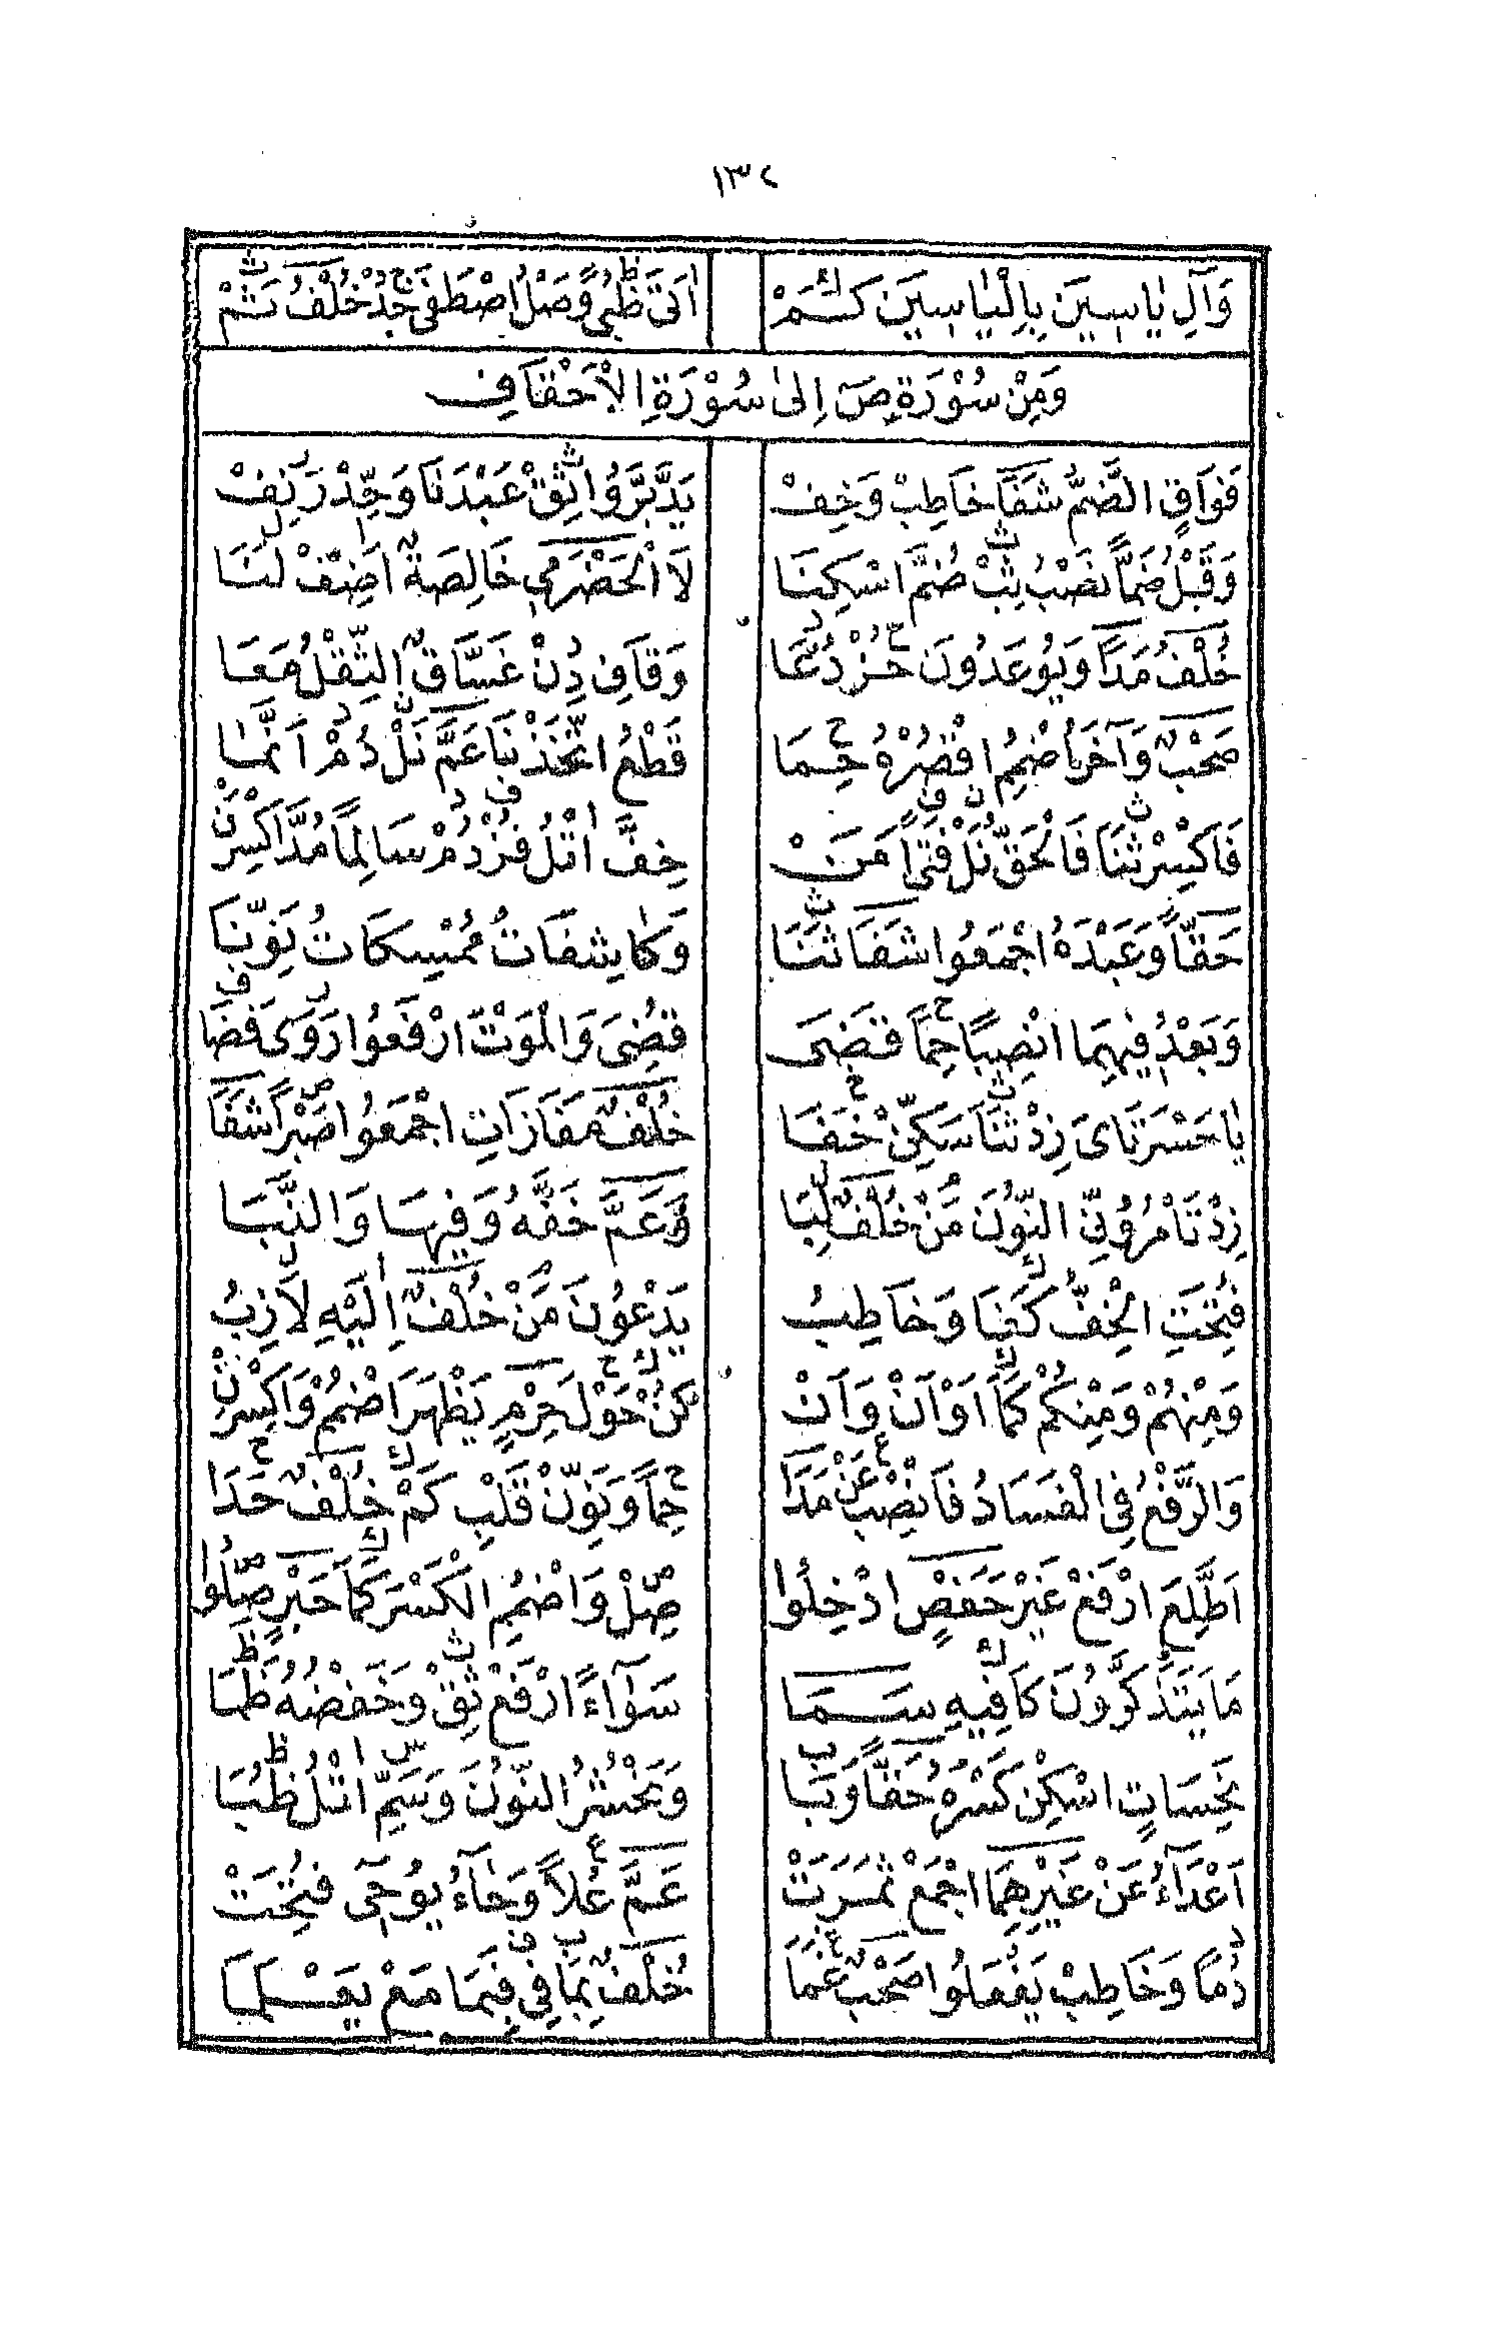 ١٣٤
وَآلِ يَاسِينَ بِإِلْيَاسِينَ كَمْ أَتَى ظُبىً وَصْلُ اصْطَفَى جُدْ خُلْفُ ثَمْ
وَمِنْ سُوْرَةِ صَ اِلىٰ سُوْرَةِ الْاَحْقَافِ
فَوَاقٍ الضَّمُّ شَفَا خَاطِبْ وَخِفْ يَدَّبَّرُوا ثِقْ عَبْدَنَا وَحِّدْ دَنِفْ
وَقَبْلُ ضَمَّا نُصْبُ ثُبْ ضُمَّ اسْكِنَا لَا الْحَضْرَمِي خَالِصَةٌ اَضِفْ لَنَا
خُلْفٌ مَدًا وَيُوعَدُونَ حُزْ دُعَا وَقَافِ دِنْ غَسَّاقٌ الثِّقْلُ مَعَا
صَحْبٌ وَآخَرُ اضْمُمِ اقْصُرْهُ حِمَا قَطْعُ اتَّخَذْنَا عَمَّ نَلْ دُمْ اَنَّمَا
فَاكْسِرْ ثَنَا فَالْحَقُّ نَلْ فَتًى اَمَنْ خِفَّ اتْلُ فُزْ دُمْ سَالِمًا مُدَّ اكْسِرَنْ
حَقًّا وَعَبْدَهُ اجْمَعُوا شَفَا ثَنَا وَكَاشِفَاتُ مُمْسِكَاتُ نَوِّنَا
وَبَعْدُ فِيهِمَا انْصِبًا حِمًا قَضَى قُضِىَ وَالْمَوْتَ ارْفَعُوا رَوَى فَضَا
يَا حَسْرَتَاىَ زِدْ ثَنَا سَكِّنْ خَفَا خُلْفٌ مَفَازَاتِ اجْمَعُوا صَبْرًا شَفَا
زِدْ تَأْمُرُونِّي النُّونَ مَنْ خُلْفٌ لِبَا وَعَمَّ خَفَّهُ وَفِيهَا وَالنَّبَا
فُتِّحَتِ الْخِفُّ كَفَا وَخَاطِبُ يَدْعُونَ مَنْ خُلْفٌ اِلَيْهِ لَازِبُ
وَمِنْهُمْ وَمِنْكُمْ كَمَا اَوْ اَنْ وَاَنْ كُنْ حَوْلَ حِرْمٍ يَظْهَرَ اضْمُمْ وَاكْسِرَنْ
وَالرَّفْعُ فِي الْفَسَادُ فَانْصِبْ عَنْ مَدَا حِمًا وَنَوِّنْ قَلْبِ كَمْ خُلْفٌ حَدَا
اَطَّلِعَ ارْفَعْ غَيْرَ حَفْصٍ ادْخِلُوا صِلْ وَاضْمُمِ الْكَسْرَ كَمَا حَبْرٍ صِلُوا
مَا يَتَذَكَّرُونَ كَافِيهِ سَمَا سَوَاءً ارْفَعْ ثِقْ وَخَفْضُهُ ظَمَا
نَحِسَاتٍ اسْكِنْ كَسْرَهُ حَقًّا وَبَا وَنَحْشُرُ النُّونَ وَسَمِّ اتْلُ ظُبَا
اَعْدَاءُ عَنْ غَيْرِهِمَا اجْمَعْ ثَمَرَتْ عَمَّ عُلًا وَحَاءُ يُوحَى فُتِحَتْ
دُمًا وَخَاطِبْ يَفْعَلُوا صَحْبٌ غَمَا خُلْفٌ بِمَا فِي فَبِمَا مَعْ يَعْلَمَا